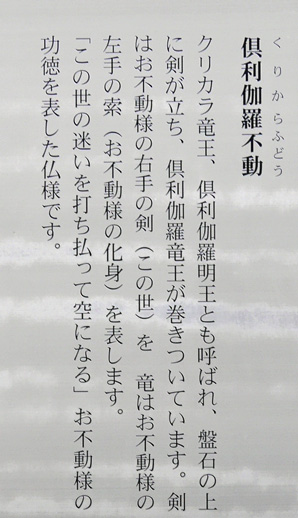 くりからふどう
倶利伽羅不動
クリカラ竜王、倶利伽羅明王とも呼ばれ、盤石の上
に剣が立ち、倶利伽羅竜王が巻きついています。剣
はお不動様の右手の剣（この世）を　竜はお不動様の
左手の索（お不動様の化身）を表します。
「この世の迷いを打ち払って空になる」お不動様の
功徳を表した仏様です。